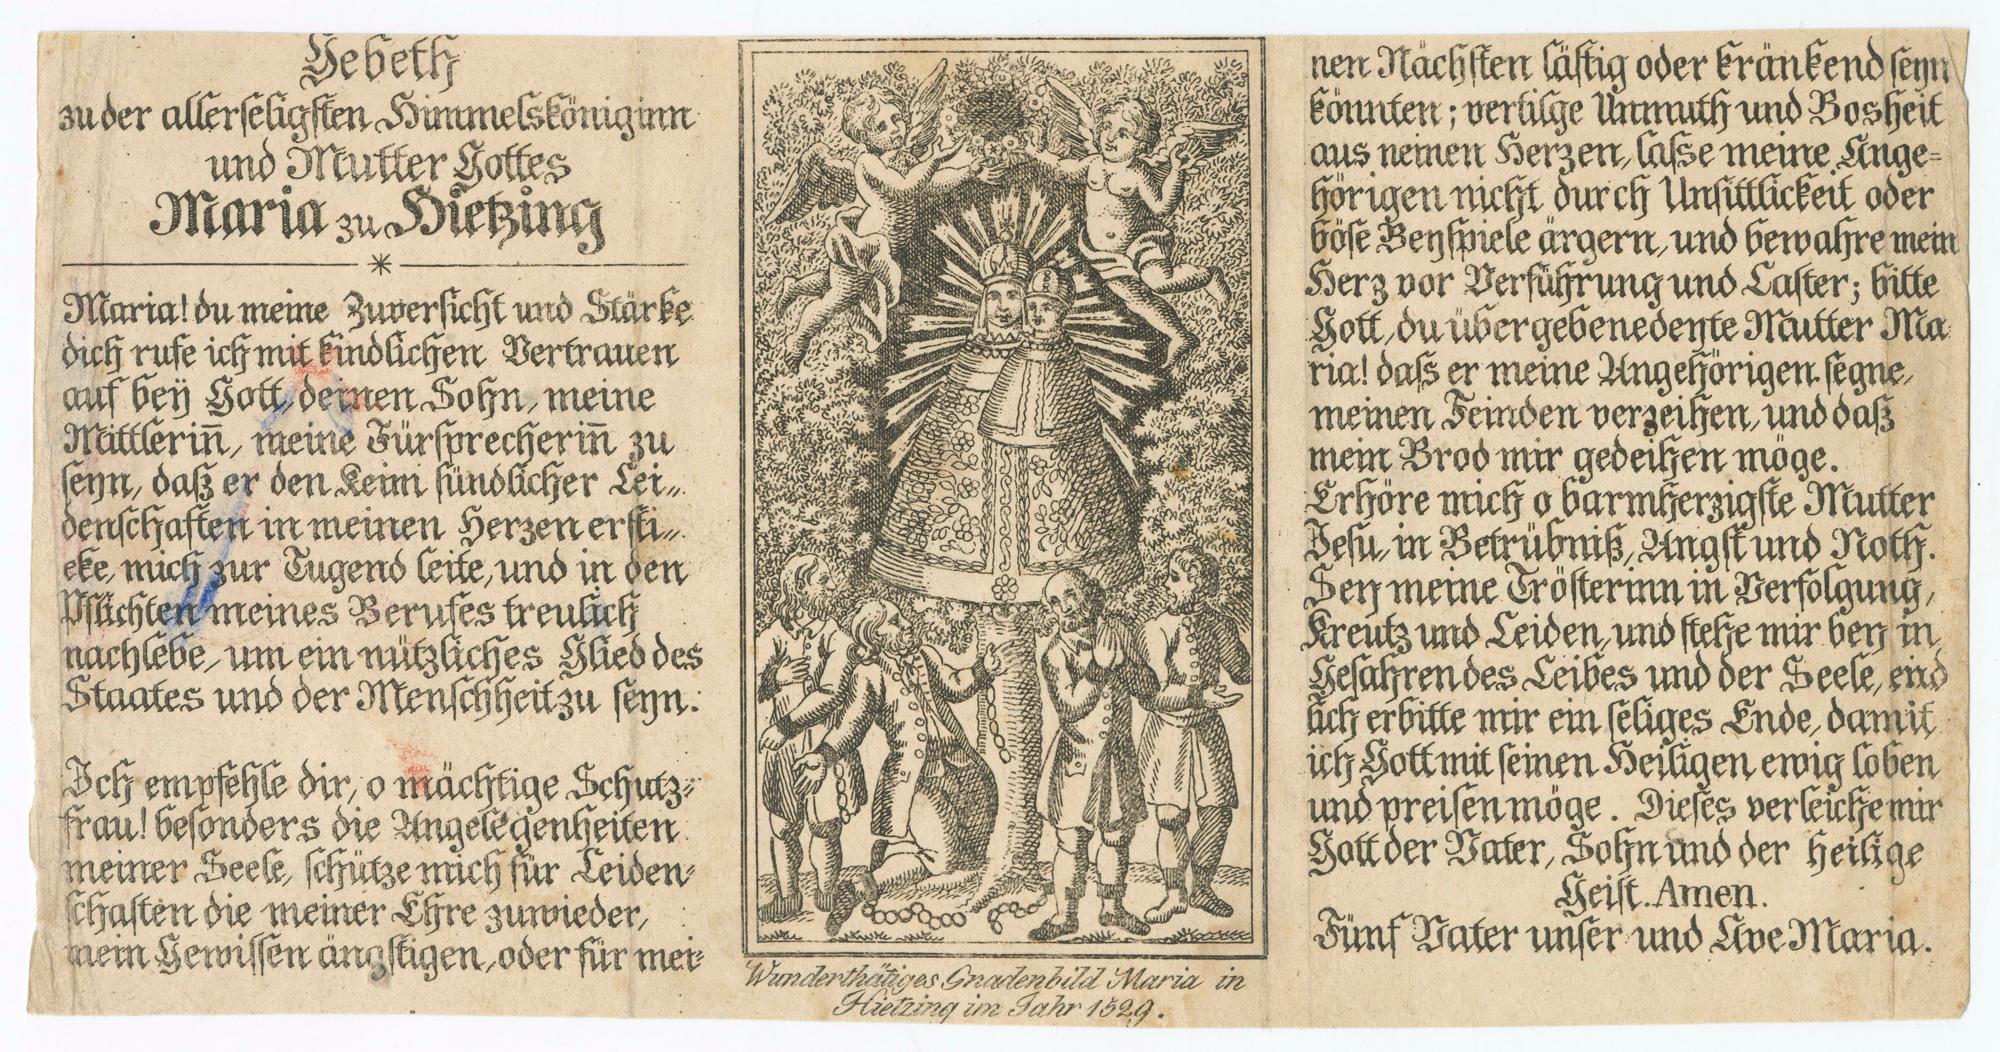 Gebeth
zu der allerseligsten Himmelsköniginn
und Mutter Gottes
Maria zu Hietzing
Maria! du meine Zuversicht und Stärke
dich rufe ich mit kindlichen Vertrauen
auf bey Gott, deinen Sohn, meine
Mittlerin̄, meine Fürsprecherin̄ zu
seyn, daß er den Keim sündlicher Lei„
denschaften in meinen Herzen ersti„
cke, mich zur Tugend leite, und in den
Pflichten meines Berufes treulich
nachlebe, um ein nützliches Glied des
Staates und der Menschheit zu seyn.
Ich empfehle dir, o mächtige Schutz=
frau! besonders die Angelegenheiten
meiner Seele, schütze mich für Leiden=
schaften die meiner Ehre zuwieder,
mein Gewissen ängstigen, oder für mei=
Wunderthätiges Gnadenbild Maria in
Hietzing im Jahr 1529.
nen Nächsten lästig oder kränkend seyn
könnten; vertilge Unmuth und Bosheit
aus neinen Herzen, lasse meine Ange=
hörigen nicht durch Unsittlickeit oder
böse Beyspiele ärgern, und bewahre mein
Herz vor Verführung und Laster; bitte
Gott, du übergebenedeyte Mutter Ma
ria! dass er meine Angehörigen segne,
meinen Feinden verzeihen, und daß
mein Brod mir gedeihen möge.
Erhöre mich o barmherzigste Mutter
Jesu, in Betrübniß, Angst und Noth.
Sey meine Trösterinn in Verfolgung,
Kreutz und Leiden, und stehe mir bey in
Gefahren des Leibes und der Seele, end
lich erbitte mir ein seliges Ende, damit
ich Gott mit seinen Heiligen ewig loben
und preisen möge. Dieses verleiche mir
Gott der Vater, Sohn und der heilige
Geist. Amen.
Fünf Vater unser und Ave Maria.